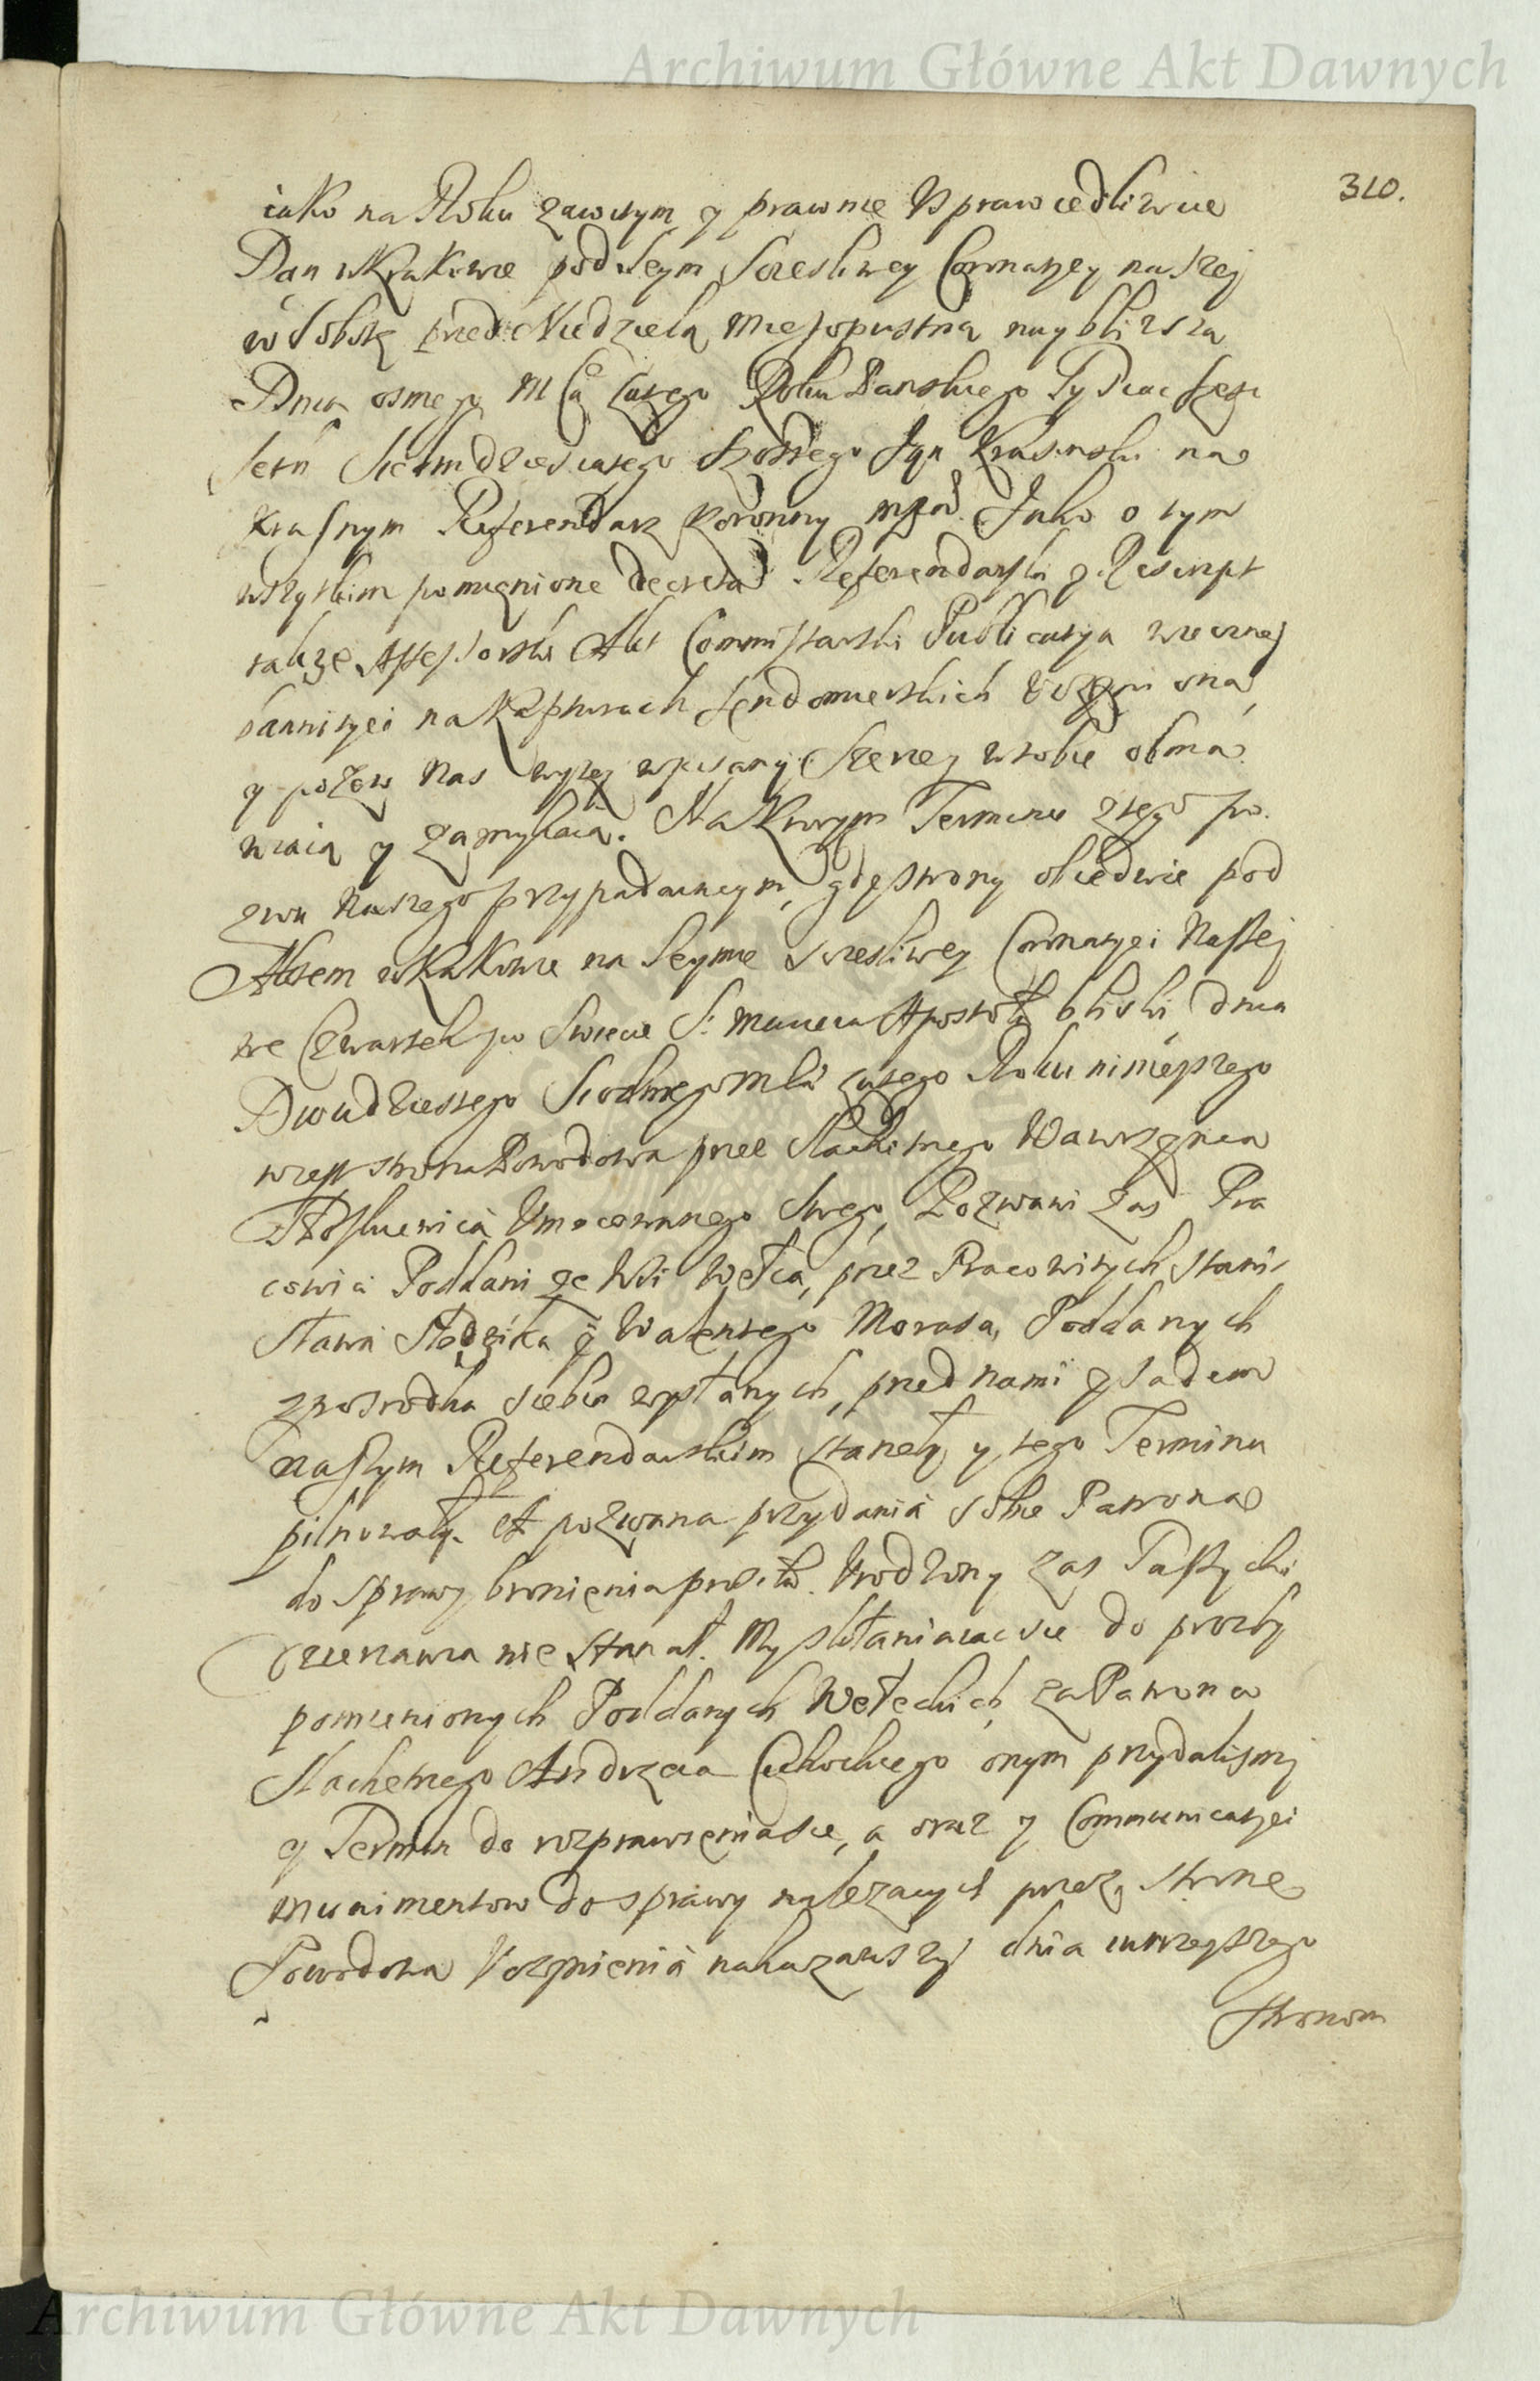 Archiwum Główne Akt Dawnych
310.
iako na Roku zawitym y prawnie Usprawiedliwiła
Dan w Krakowie pod Seym Szczesliwey Coronatyey naszej
w Sobotę przed Niedzielą Mięsopustną naybliższą
Dnia osmego Mca lutego Roku Panskiego Tysiac szesc
setn Siedmdziesiątego szostego Jan Krasinski na
Krasnym Referendarz Koronny mpa. Jako o tym
wszytkim pomienione decreta Referendarskie y Rescript
także Assessorski Akt Commissarski Publicatya wieczney
bannityei na Kapturach Sendomierskich uczyniona
y pozew nas wyżey wpisany szerzey w sobie obma
wiaią y zamykaią. Na ktorym Terminie z tego po
zwu Naszego przypadaiącym, gdy strony obiedwie pod
Aktem w Krakowie na Seymie szczesliwey Coronatyei Naszej
we Czwartek po Swiecie S. Macieia Apostoła bliski dnia
Dwudziestego Siodmego Mca lutego Roku ninieyszego
wzyż strona Powodowa przez Slachetnego Wawrzynca
Umocowanego swego, Pozwani zas Pra
cowici Poddani ze Wsi Wełcza, przez Pracowitych Stani
sława Sledzika y Walentego Morasa, Poddanych
z posrodka siebie zesłanych, przed nami y sądem
naszym Referendarskim stanęły y tego Terminu
pilnowały. A pozwana przydania sobie Patrona
do sprawy bronienia prosiła. Urodzony zas Taszycki
nie stanał. My skłaniaiac sie do prozby
pomienionych Poddanych Wełeckich za Patrona
Slachetnego Andrzeia Cichockiego onym przydalismy
y Termin do rozprawienia sie, a oraz y Communicatyei
munimentow do sprawy należących przez stronę
Powodową Uczynienia nakazawszy dnia wczorayszego
stronom
Archiwum Główne Akt Dawnych